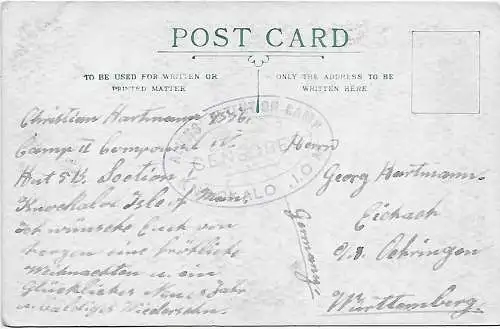 POST CARD
TO BE USED FOR WRITTEN OR
PRINTED MATTER
ONLY THE ADDRESS TO BE
WRITTEN HERE
Christian Hartmann
Camp II Compound
Hut 5B. Section 1
Knockaloe Isle of Man.
Ich wünsche Euch von
herzen eine fröhliche
Weihnachten u. ein
Glückliches Neues Jahr
Wiedersehn.
DETENTION CAMP
CENSORED
I.O.M.
Herrn
Georg Hartmann
Eichach
Oehringen
Württemberg.
Germany.